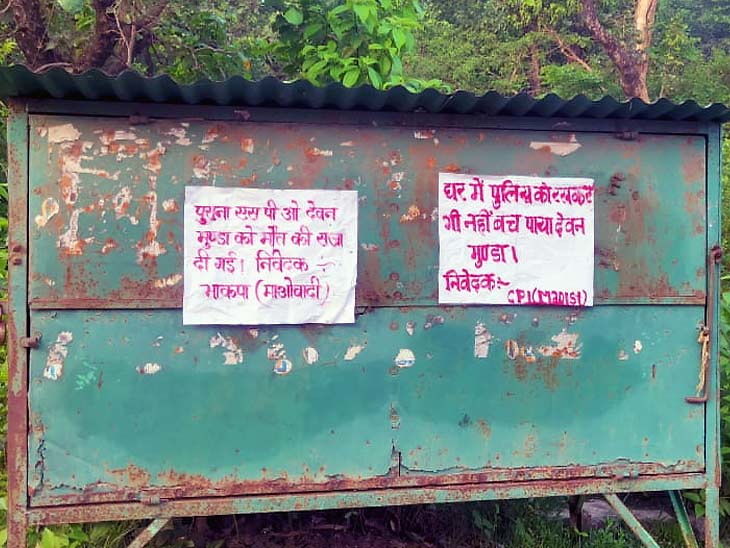 पुराना एस पी ओ देवन
मुण्डा को मौत की सजा
दी गई। निवेदक :-
भाकपा (माओवादी)
घर में पुलिस को रखकर
भी नहीं बच पाया देवन
मुण्डा।
निवेदक:-
CPI(MaOIST)